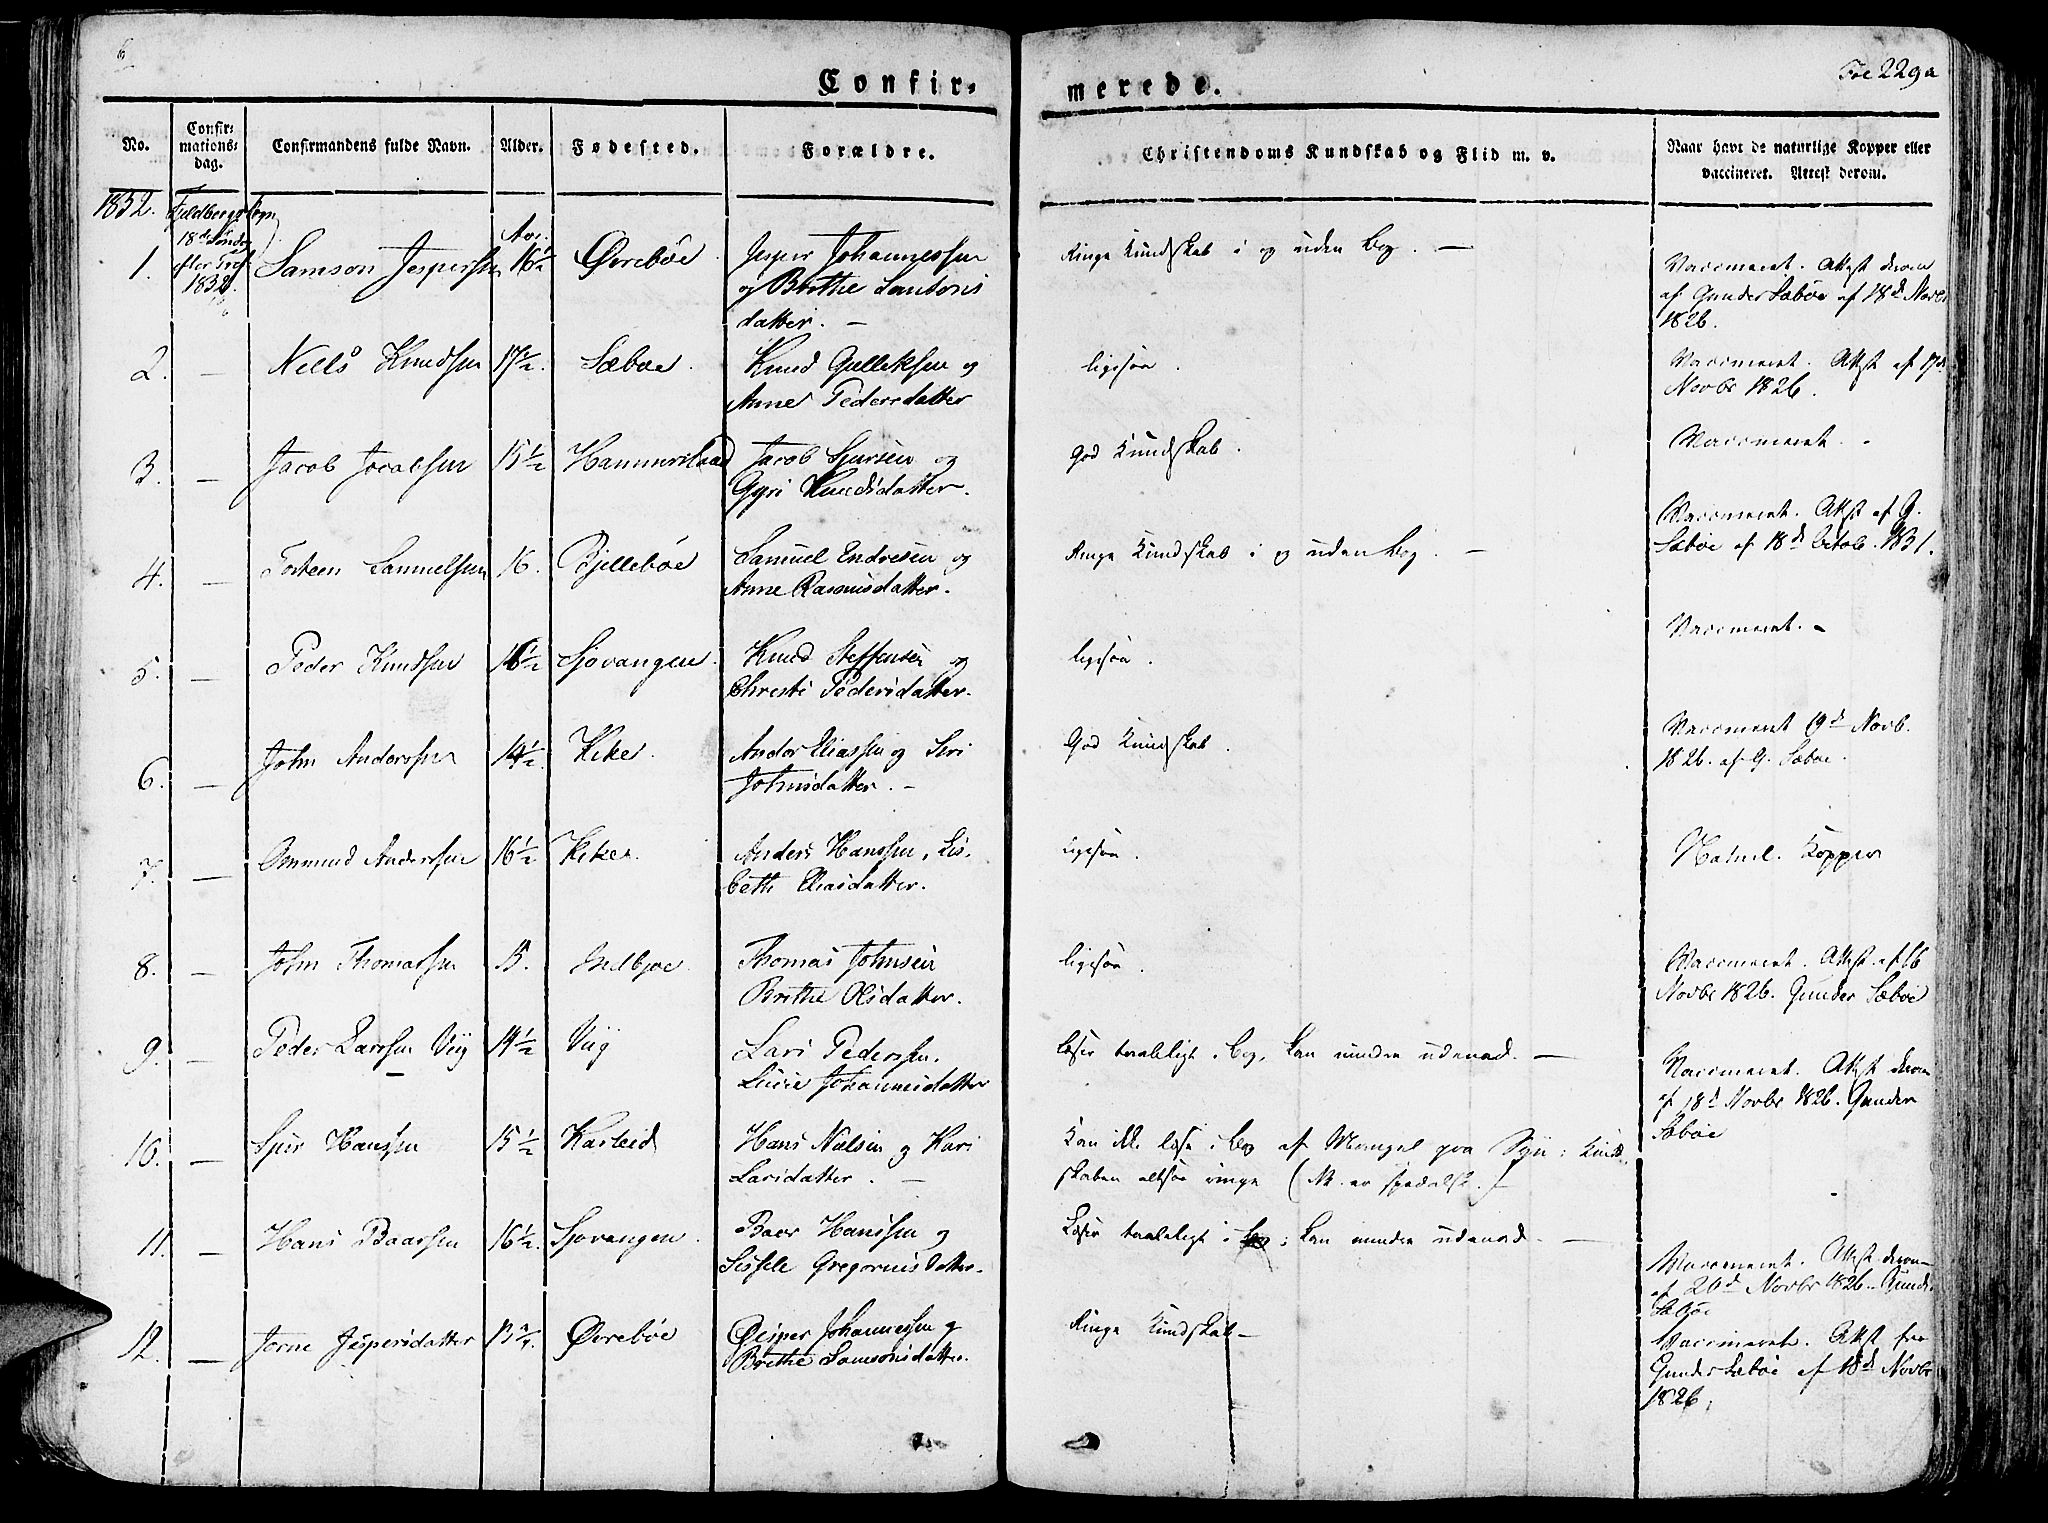 6
Confir=
merede.
Fol 229a
No.
Confir=
mations=
dag.
Confirmandens fulde Navn.
Alder.
Fødested.
Forældre.
Christendoms Kundskab og Flid m. v.
Naar havt de naturlige Kopper eller
vaccineret. Attest derom.
1832.
Fieldbergs Sogn
18de Søndag
efter Tref
1832.
1.
Samson Jespersen
Aar.
16½
Øvrebøe
Jesper Johannessen
og Brithe Samsons
datter. —
Ringe Kundskab i og uden Bog. —
Vaccineret. Attest derom
af Gunder Sæbøe af 18de Novbr
1826.
2.
—
Nells Knudsen
17½
Sæbøe.
Knud Gulleksen og
Anne Pedersdatter
ligesaa.
Vaccineret. Attest af 17de
Novbr 1826.
3.
—
Jacob Jocabsen
15½
Hammersland
Jacob Sjursen og
Gyri Knudsdatter.
God Kundskab.
Vaccineret. -
4.
—
Torsteen Samuelsen
16.
Bjellebøe
Samuel Endresen og
Anne Rasmusdatter.
Ringe Kundskab i og uden Bog. —
Vaccineret. Attest af G.
Sæbøe af 18de Octob. 1831.
5.
—
Peder Knudsen
16½
Sjovangen.
Knud Steffensen og
Christi Pedersdatter.
ligesaa.
Vaccineret. -
6.
—
John Anderssen
14½
Kike.
Ander Eliassen og Siri
Johnsdatter. -
God Kundskab.
Vaccineret 19de Novb.
1826. af G. Sæbøe.
7.
—
Ommund Anderssen
16½
Kike.
Anders Hanssen, Lis,
beth Eliasdatter.
Ligesaa.
Naturl. Kopper
8.
—
John Thomassen
15.
Indbjoe.
Thomas Johnsen
Brithe Olsdatter.
ligesaa.
Vaccineret. Attest. af 16
Novbr 1826. Gunder Sæbøe
9.
—
Peder Larssen Viig
14½
Viig
Lars Pederssen.
Lucie Johannesdatter
læser taaleligt i Bog, kan mindre udenad. —
Vaccineret. Attest derom
af 18de Novbr 1826. Gunder
Sæbøe
10.
—
Hanssen
15½
Hans Nielsen og Kari
Larsdatter. —
Kan ikke læse i Bog af Mangel paa Syn; Kund
skaben altsaa ringe (NB. er spedalsk.)
11.
—
Hans Baarssen
16½.
Sjovangen.
Baar Hanssen og
Sissele Gregoriusdatter.
Læser taaleligt i Bog; kan mindre udenad. —
Vaccineret. Attest derom
af 20de Novbr 1826. Gunder
Sæbøe
12.
—
Jorne Jespersdatter
15¾.
Øvrebøe
Jesper Johannessen og
Brithe Samsonsdatter.
Ringe Kundskab —
Vaccineret. Attest fra
Gunder Sæbøe af 18de Novbr
1826.